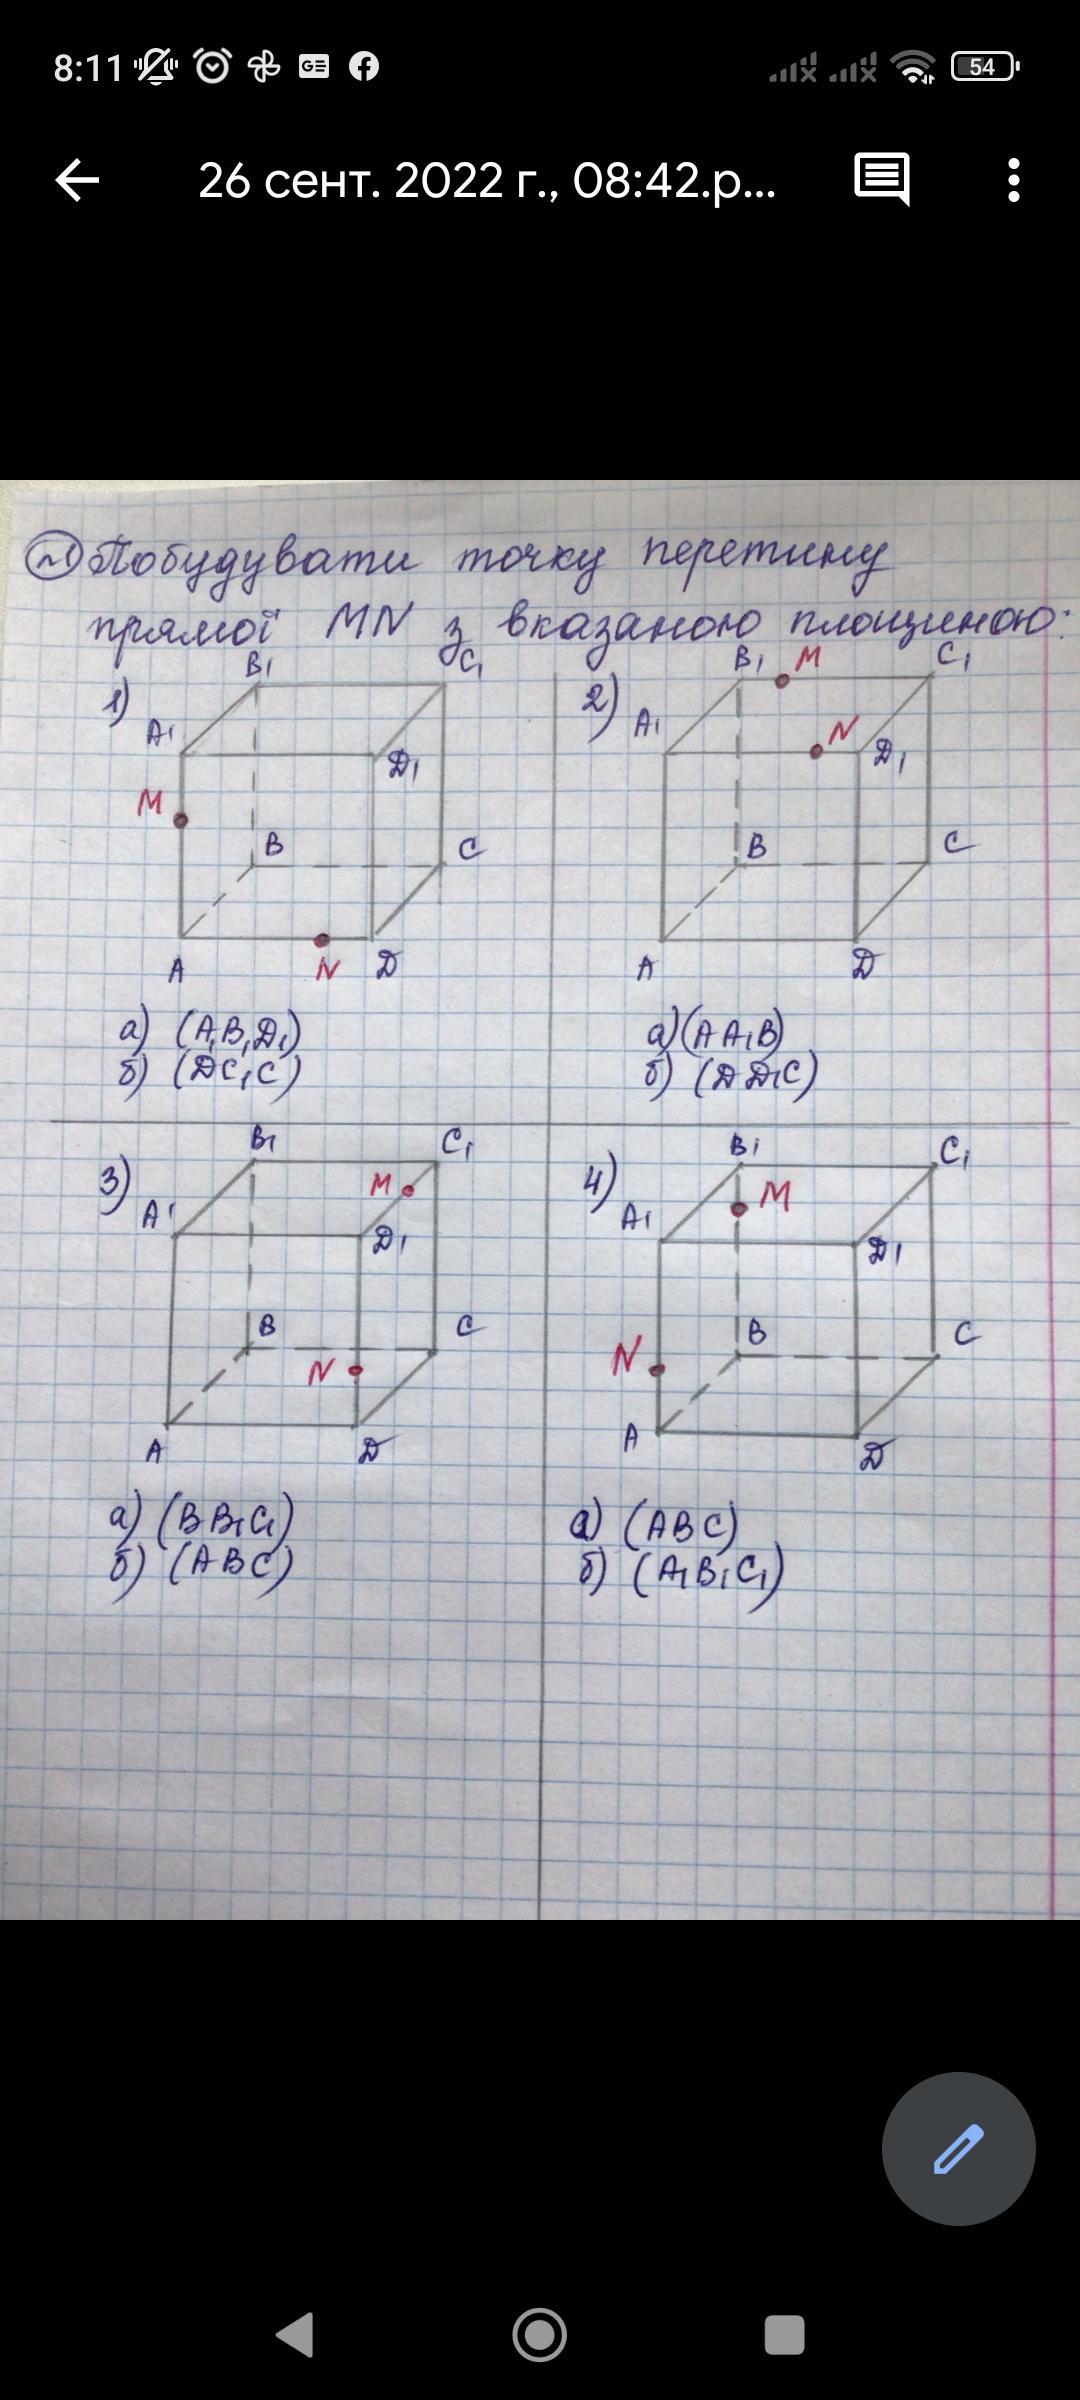 8:11 54
26 сент. 2022 г., 08:42.p...
~1 Побудувати точку перетину
прямої MN з вказаною площиною:
1) A1 B1 C1 D1 M A B C D N
а) (A1B1D1)
б) (DC1C)
2) A1 B1 M C1 N D1 A B C D
а) (AA1B)
б) (DD1C)
3) A1 B1 C1 M D1 A B C N D
а) (BB1C1)
б) (ABC)
4) A1 B1 M C1 D1 N A B C D
а) (ABC)
б) (A1B1C1)